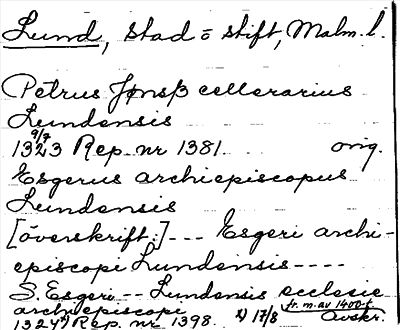 Lund, stad o stift, Malm. l.
Petrus Jonsß cellerarius
Lundensis
9/7
1323 Rep nr 1381 orig.
Esgerus archiepiscopus
Lundensis
[överskrift:] --- Esgeri archi-
episcopi Lundensis ----
S. Esgeri -- Lundensis ecclesie
archiepiscopi fr. m. av 1400-t.
1324 1) Rep. nr 1398 1) 17/8 Avskr.